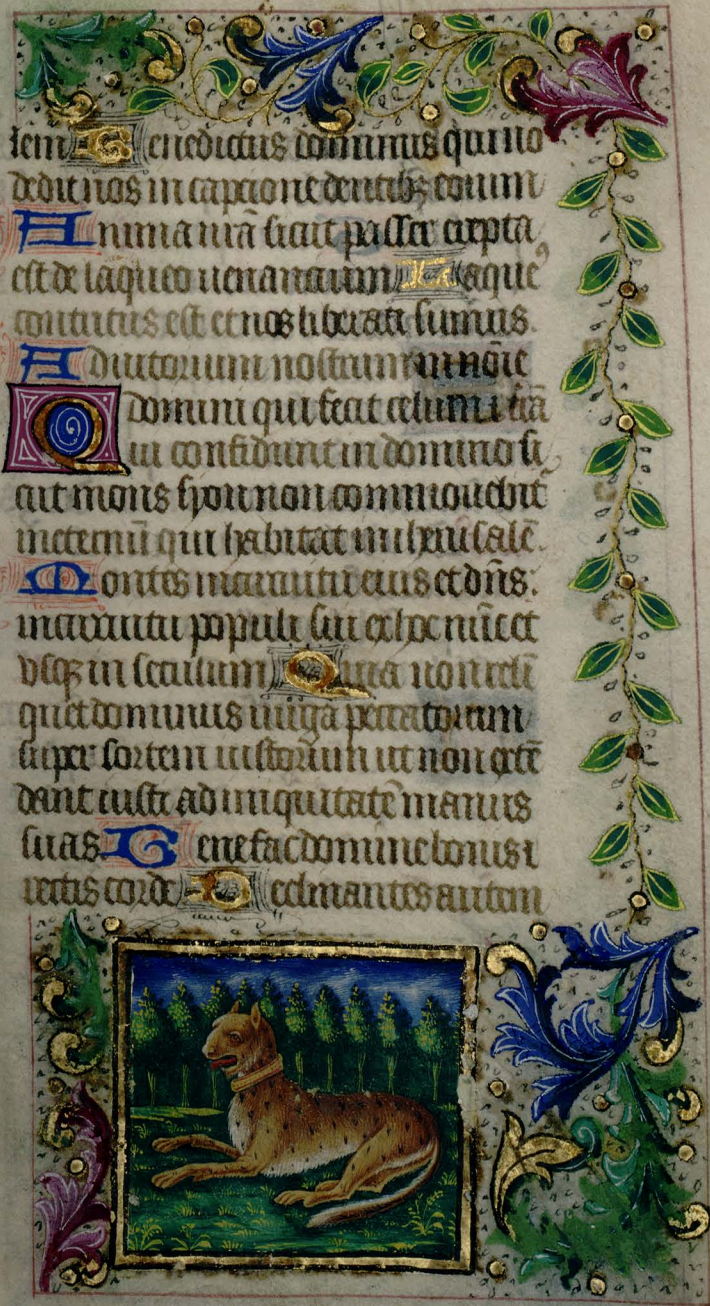 lem Benedictus dominus qui no
dedit nos in captione dentibꝫ eorum
Anima nr̃a sicut passer erepta
est de laqueo uenantium Laqueꝰ
contritus est et nos liberati sumus.
Adiutorium nostrum in noĩe
domini qui fecit celum ⁊ trã
Qui confidunt in domino si
cut mons syon non commouebit᷑
ineternũ qui habitat in iherusalẽ.
Montes incircuitu eius et dñs.
incircuitu populi sui ex hoc nũc et
vsqꝫ in seculum Quia non reli
quet dominus uirgã peccatorum
super sortem iustorum ut non extẽ
dant iusti ad iniquitatẽ manus
suas Benefac domine bonis ⁊
rectis corde Declinantes autem